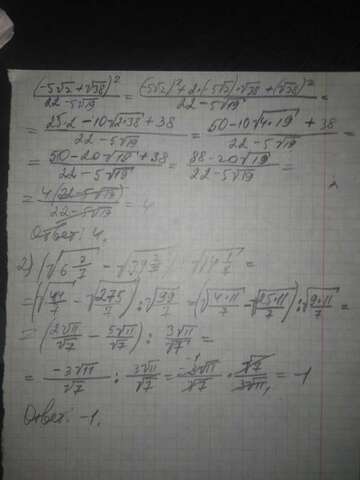 (-5√2 + √38)² / (22 - 5√19) = ((-5√2)² + 2·(-5√2)·√38 + (√38)²) / (22 - 5√19) =
= (25·2 - 10√(2·38) + 38) / (22 - 5√19) = (50 - 10√(4·19) + 38) / (22 - 5√19) =
= (50 - 20√19 + 38) / (22 - 5√19) = (88 - 20√19) / (22 - 5√19) =
= 4(22 - 5√19) / (22 - 5√19) = 4
Ответ: 4.
2) (√(6 2/7) - √(39 2/7)) : √(
= (√(44/7) - √(275/7)) : √(99/7) = (√(4·11/7) - √(25·11/7)) : √(9·11/7) =
= (2√11/√7 - 5√11/√7) : 3√11/√7 =
= -3√11/√7 : 3√11/√7 = -3√11/√7 · √7/3√11 = -1
Ответ: -1.